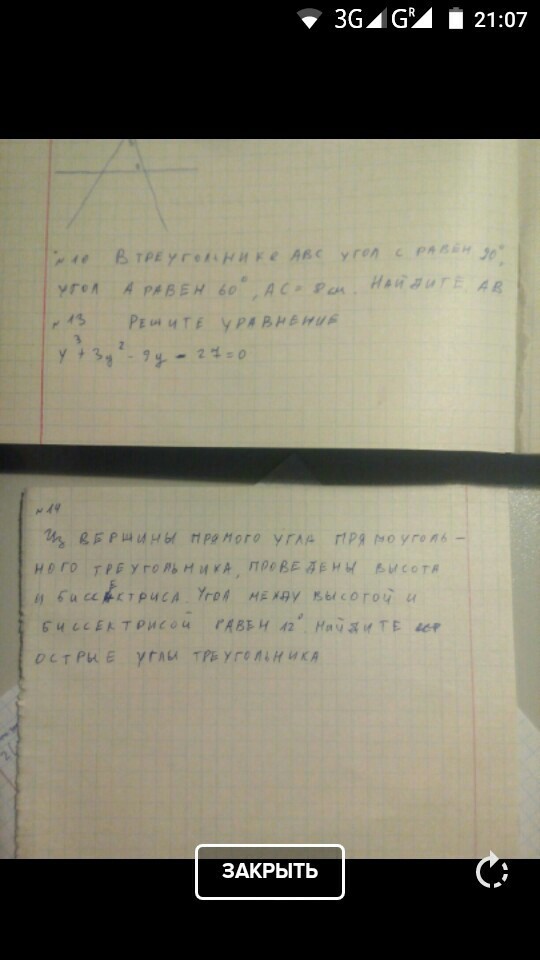 3G G R 21:07
N 10 В ТРЕУГОЛЬНИКЕ АВС УГОЛ С РАВЕН 90°,
УГОЛ А РАВЕН 60°, АС= 8см. НАЙДИТЕ АВ
N 13 РЕШИТЕ УРАВНЕНИЕ
y³+3y²-9y-27=0
N 14
Из ВЕРШИНЫ ПРЯМОГО УГЛА ПРЯМОУГОЛЬ-
НОГО ТРЕУГОЛЬНИКА, ПРОВЕДЕНЫ ВЫСОТА
И БИССЕКТРИСА. УГОЛ МЕЖДУ ВЫСОТОЙ И
БИССЕКТРИСОЙ РАВЕН 12°. НАЙДИТЕ
ОСТРЫЕ УГЛЫ ТРЕУГОЛЬНИКА
ЗАКРЫТЬ